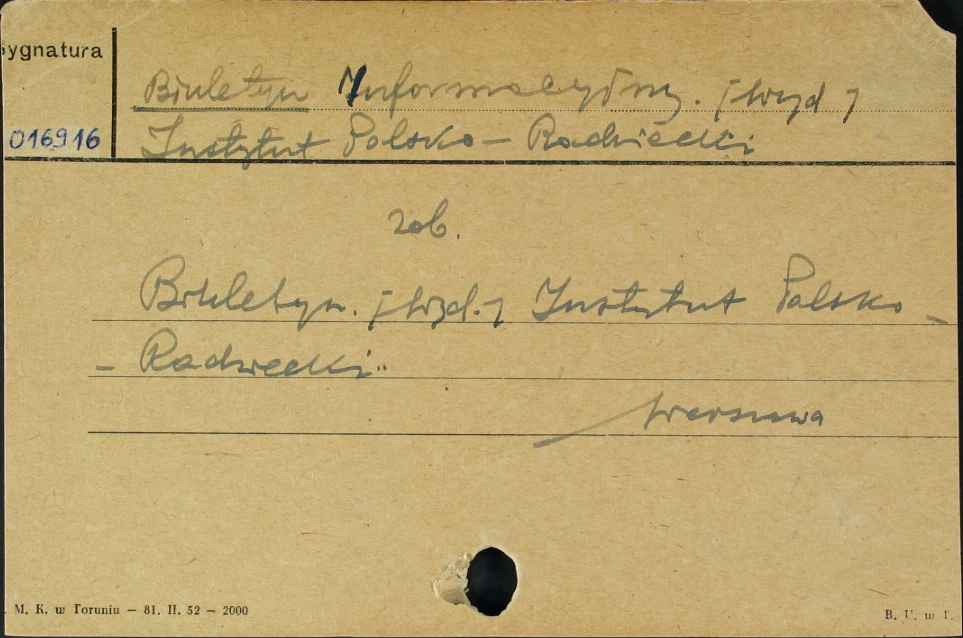 Sygnatura
Biuletyn Informacyjny. [Wyd]
016916
Instytut Polsko-Radziecki
zob.
Biuletyn. [Wyd.] Instytut Polsko-
-Radziecki.
Warszawa
. M. K. w Toruniu — 81. II. 52 — 2000
B. U. w T.